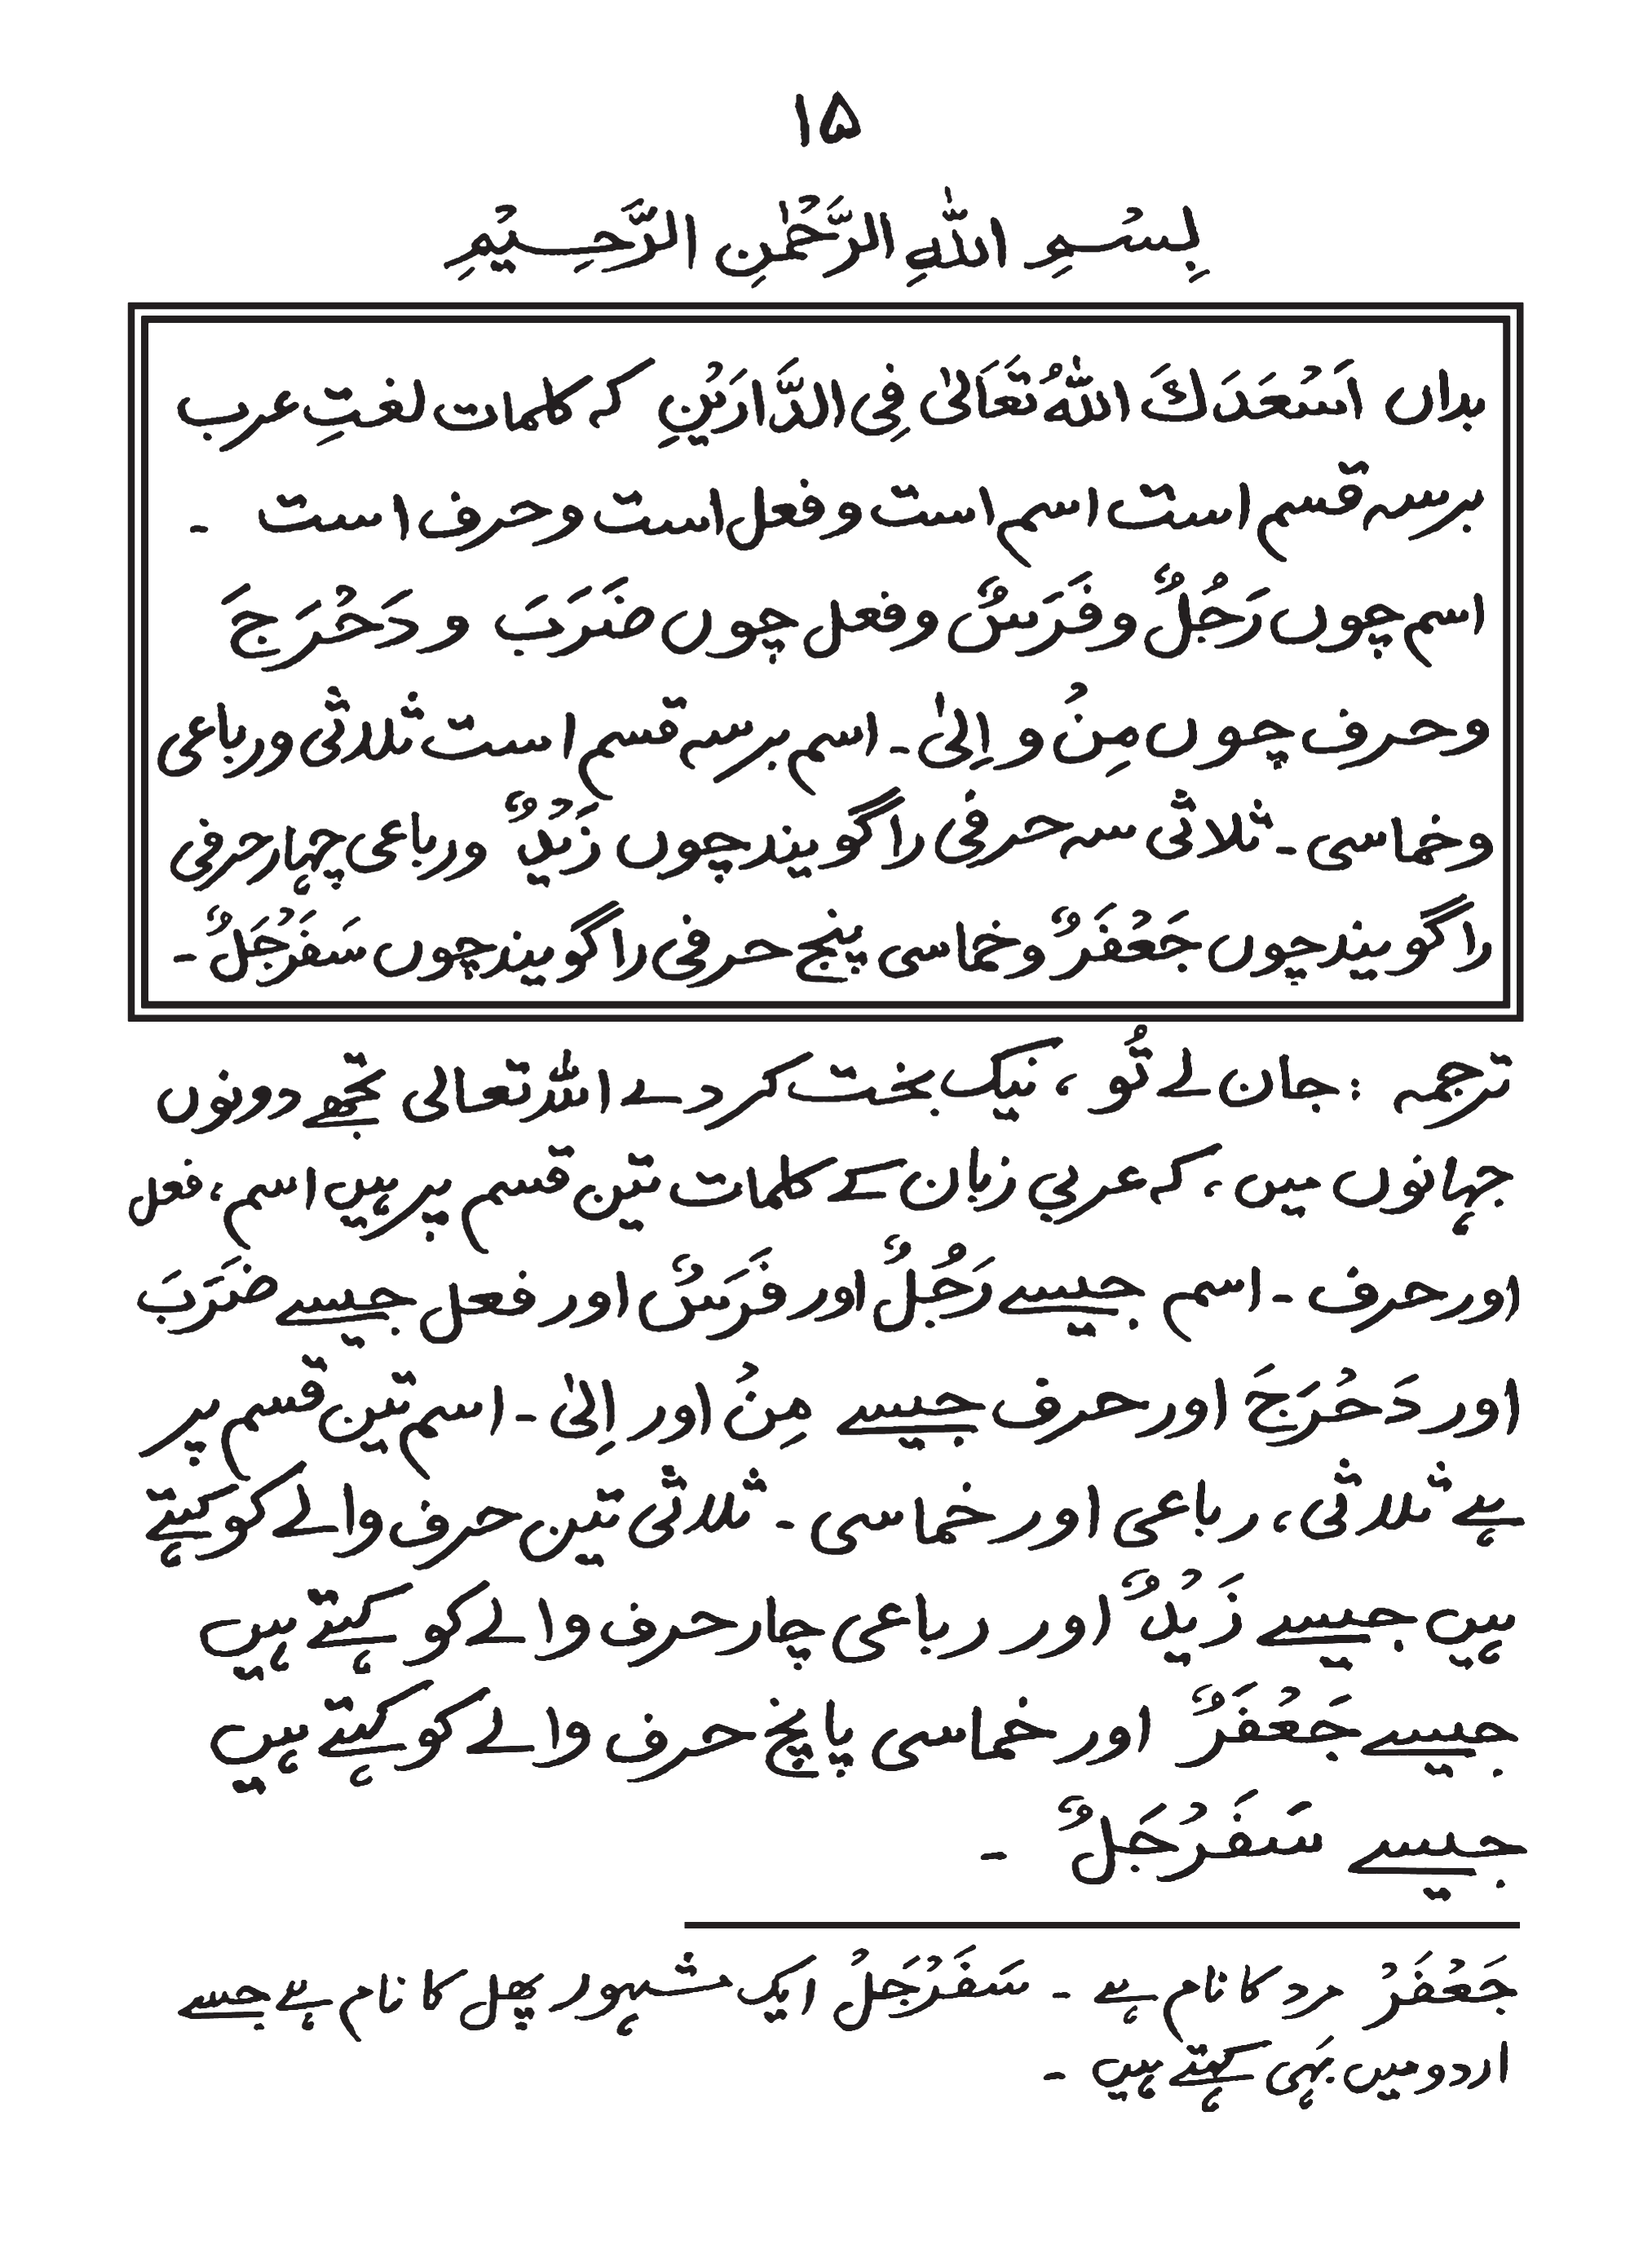 ۱۵
بِسْمِ اللّٰهِ الرَّحْمٰنِ الرَّحِيْمِ
بداں اَسْعَدَكَ اللّٰهُ تَعَالٰى فِى الدَّارَيْنِ کہ کلمات لغتِ عرب
برسہ قسم است اسم است و فعل است و حرف است ۔
اسم چوں رَجُلٌ و فَرَسٌ و فعل چوں ضَرَبَ و دَحْرَجَ
و حرف چوں مِنْ و اِلىٰ ۔ اسم برسہ قسم است ثلاثی و رباعی
و خماسی ۔ ثلاثی سہ حرفی را گویند چوں زَيْدٌ و رباعی چہار حرفی
را گویند چوں جَعْفَرٌ و خماسی پنج حرفی را گویند چوں سَفَرْجَلٌ ۔
ترجمہ : جان لے تُو ، نیک بخت کر دے اللہ تعالی تجھے دونوں
جہانوں میں ، کہ عربی زبان کے کلمات تین قسم پر ہیں اسم ، فعل
اور حرف ۔ اسم جیسے رَجُلٌ اور فَرَسٌ اور فعل جیسے ضَرَبَ
اور دَحْرَجَ اور حرف جیسے مِنْ اور اِلىٰ ۔ اسم تین قسم پر
ہے ثلاثی ، رباعی اور خماسی ۔ ثلاثی تین حرف والے کو کہتے
ہیں جیسے زَيْدٌ اور رباعی چار حرف والے کو کہتے ہیں
جیسے جَعْفَرٌ اور خماسی پانچ حرف والے کو کہتے ہیں
جیسے سَفَرْجَلٌ ۔
جَعْفَرْ مرد کا نام ہے ۔ سَفَرْجَلْ ایک مشہور پھل کا نام ہے جسے
اردو میں بہی کہتے ہیں ۔